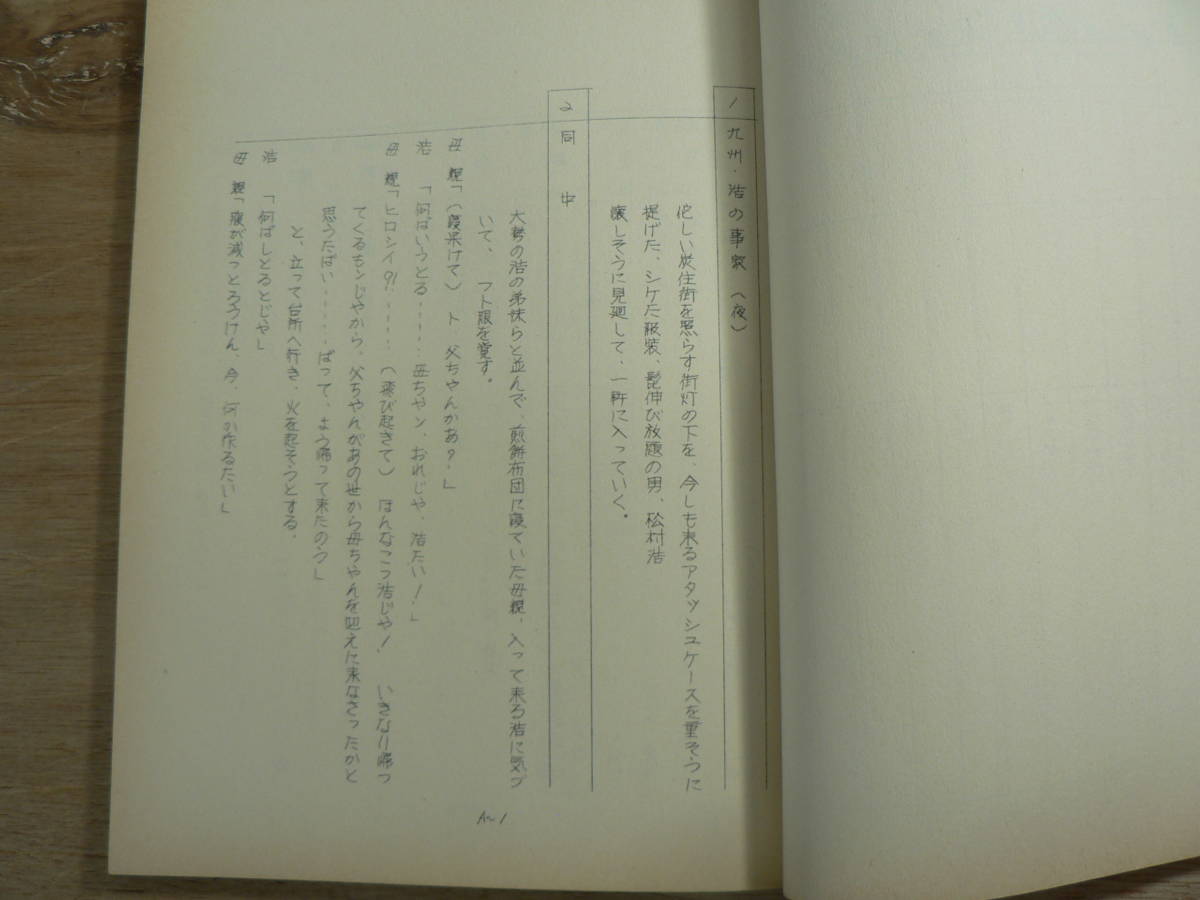 1 九州・浩の事家(夜)
侘しい炭住街を照らす街灯の下を、今しも来るアタッシュケースを重そうに
提げた、シケた服装、髭伸び放題の男、松村浩
懐しそうに見廻して、一軒に入っていく。
2 同 中
大勢の浩の弟妹らと並んで、煎餅布団に寝ていた母親、入って来る浩に気づ
いて、フト眼を覚す。
母親「(寝呆けて)ト、父ちゃんかあ?」
浩「何ばいうとる……母ちゃン、おれじゃ、浩たい!」
母親「ヒロシイ?!……(飛び起きて)ほんなこつ浩じゃ! いきなり帰っ
てくるもンじゃから、父ちゃんがあの世から母ちゃんを迎えに来なさったかと
思うたばい……ばって、よう帰って来たのう」
と、立って台所へ行き、火を起そうとする。
浩「何ばしとるとじゃ」
母親「腹が減っとろうけん、今、何か作るたい」
A~1